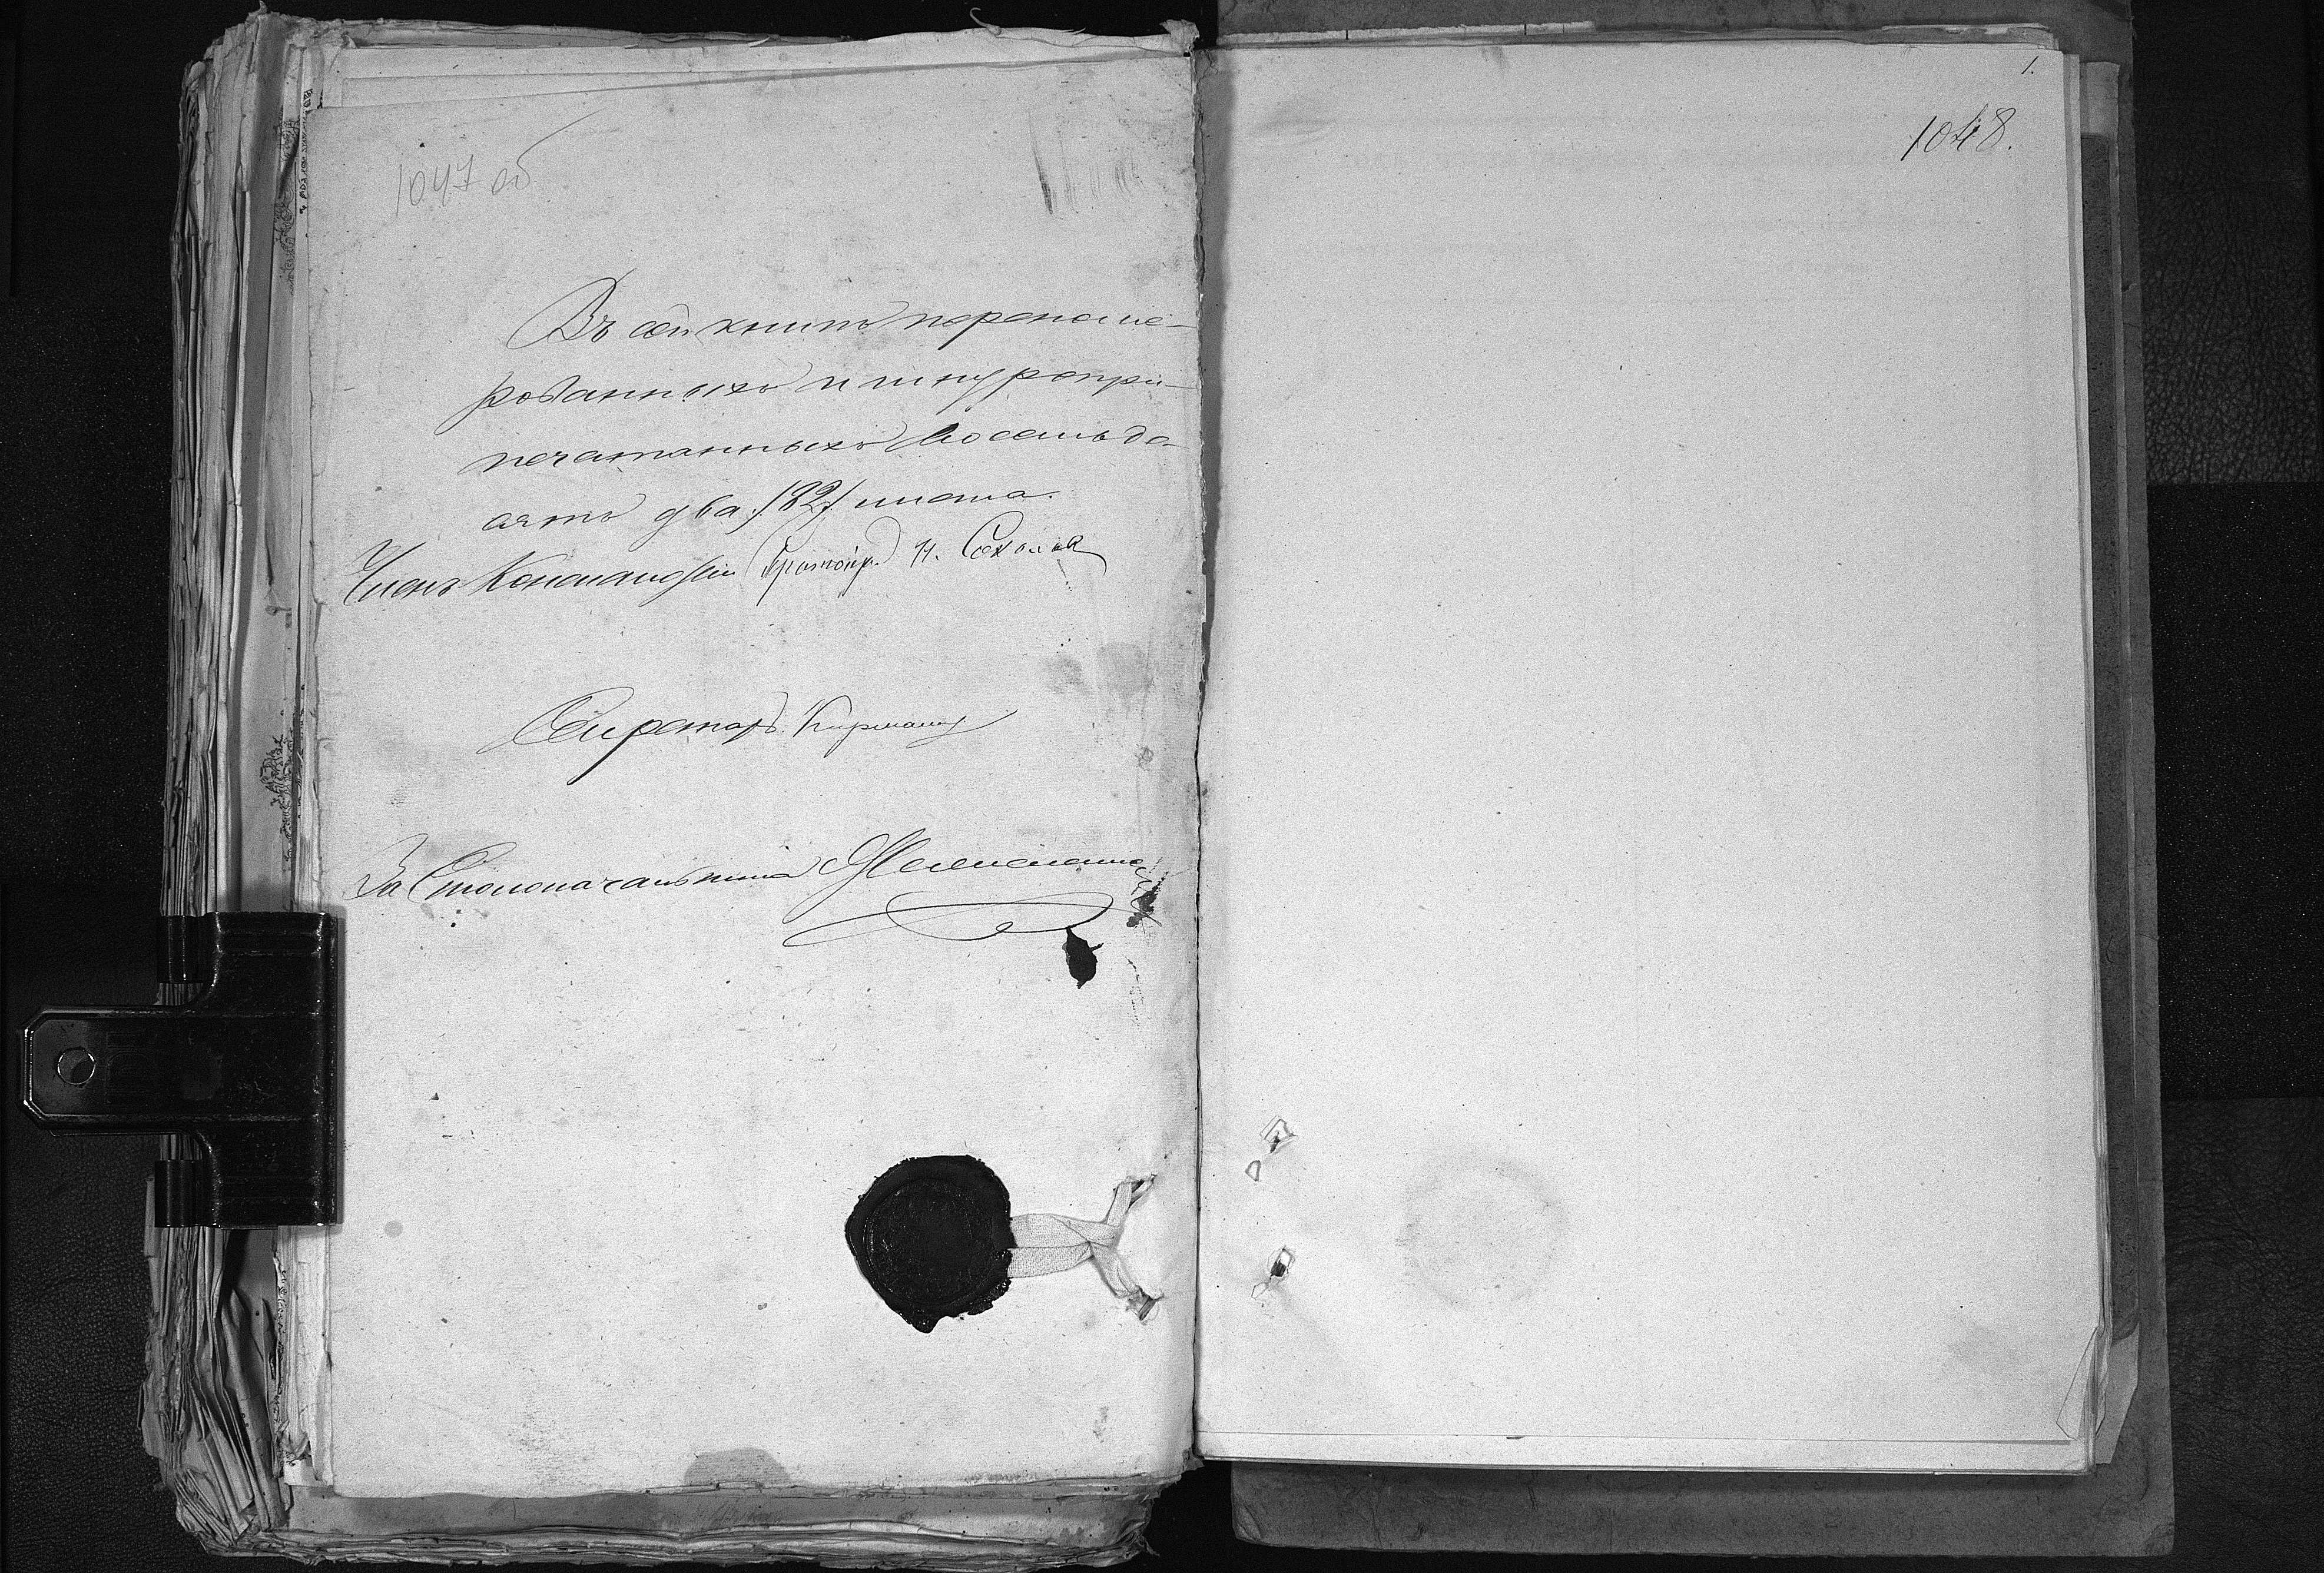 1047 об
Въ сей книгѣ перенуме-
рованныхъ и шнуропри-
печатанныхъ восемьде-
сятъ два /82/ листа.
Членъ Консисторіи Протоіер. Н. Соколов
Секретарь
За Столоначальника
1.
1048.